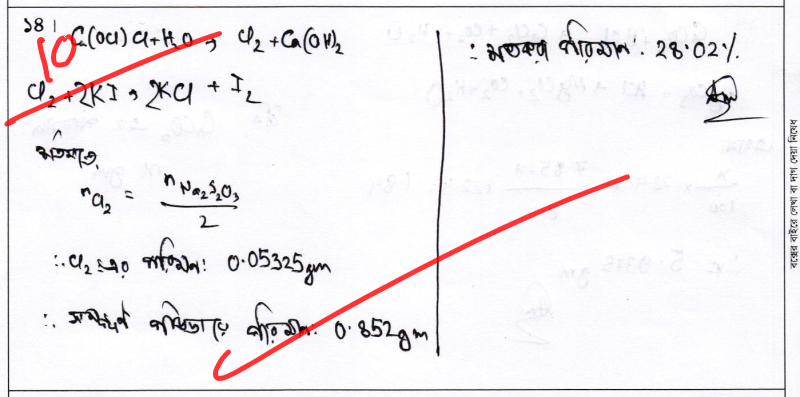 ১৪।
10
Ca(OCl)Cl + H₂O → Cl₂ + Ca(OH)₂
Cl₂ + 2KI → 2KCl + I₂
প্রতিমতে,
n Cl₂ = n Na₂S₂O₃ / 2
∴ Cl₂ এর পরিমান: 0.05325gm
∴ সম্পূর্ণ পরিমান: 0.852gm
∴ শতকরা পরিমান: 28.02%
বক্সের বাইরে লেখা বা দাগ দেয়া নিষেধ